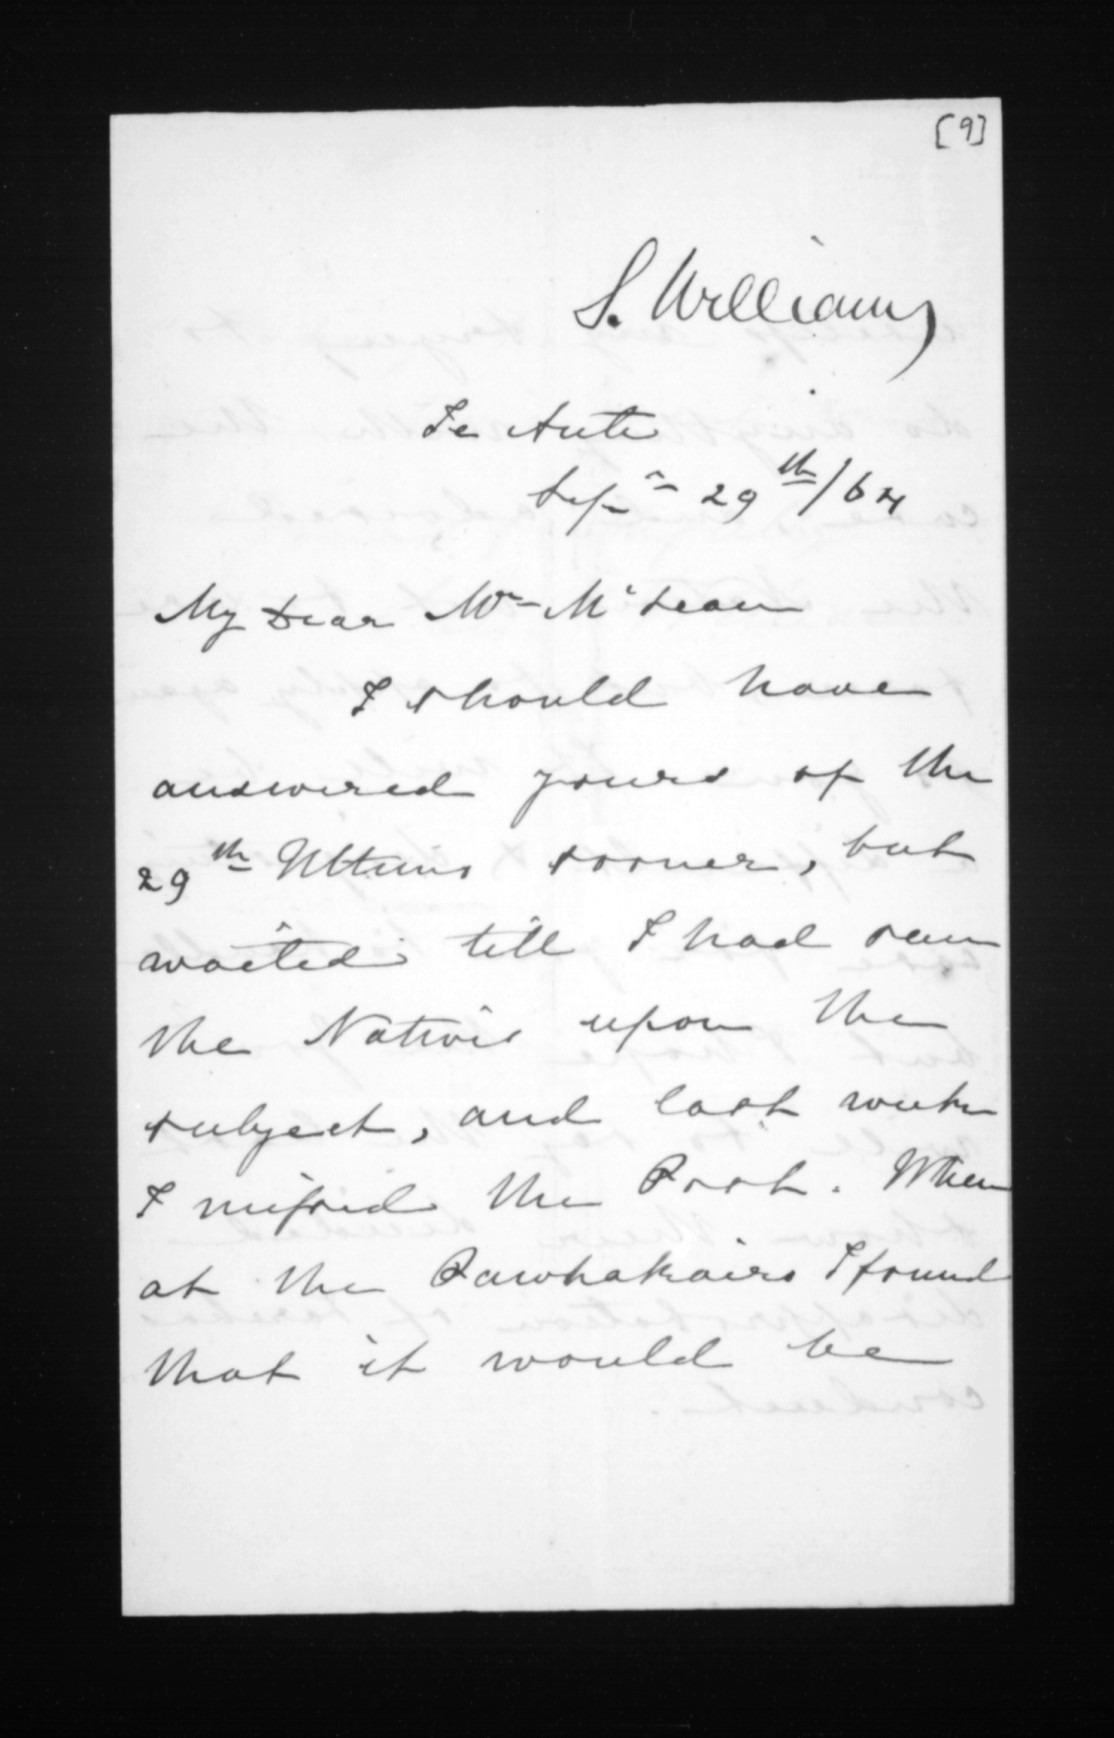 [9]
S. Williams
Te Aute
Sepr 29th/64
My Dear Mr McLean
I should have
answered yours of the
29th Ultimo sooner, but
waited till I had seen
the Natives upon the
subject, and last week
I missed the Post. When
at the Pawhakairo I found
that it would be